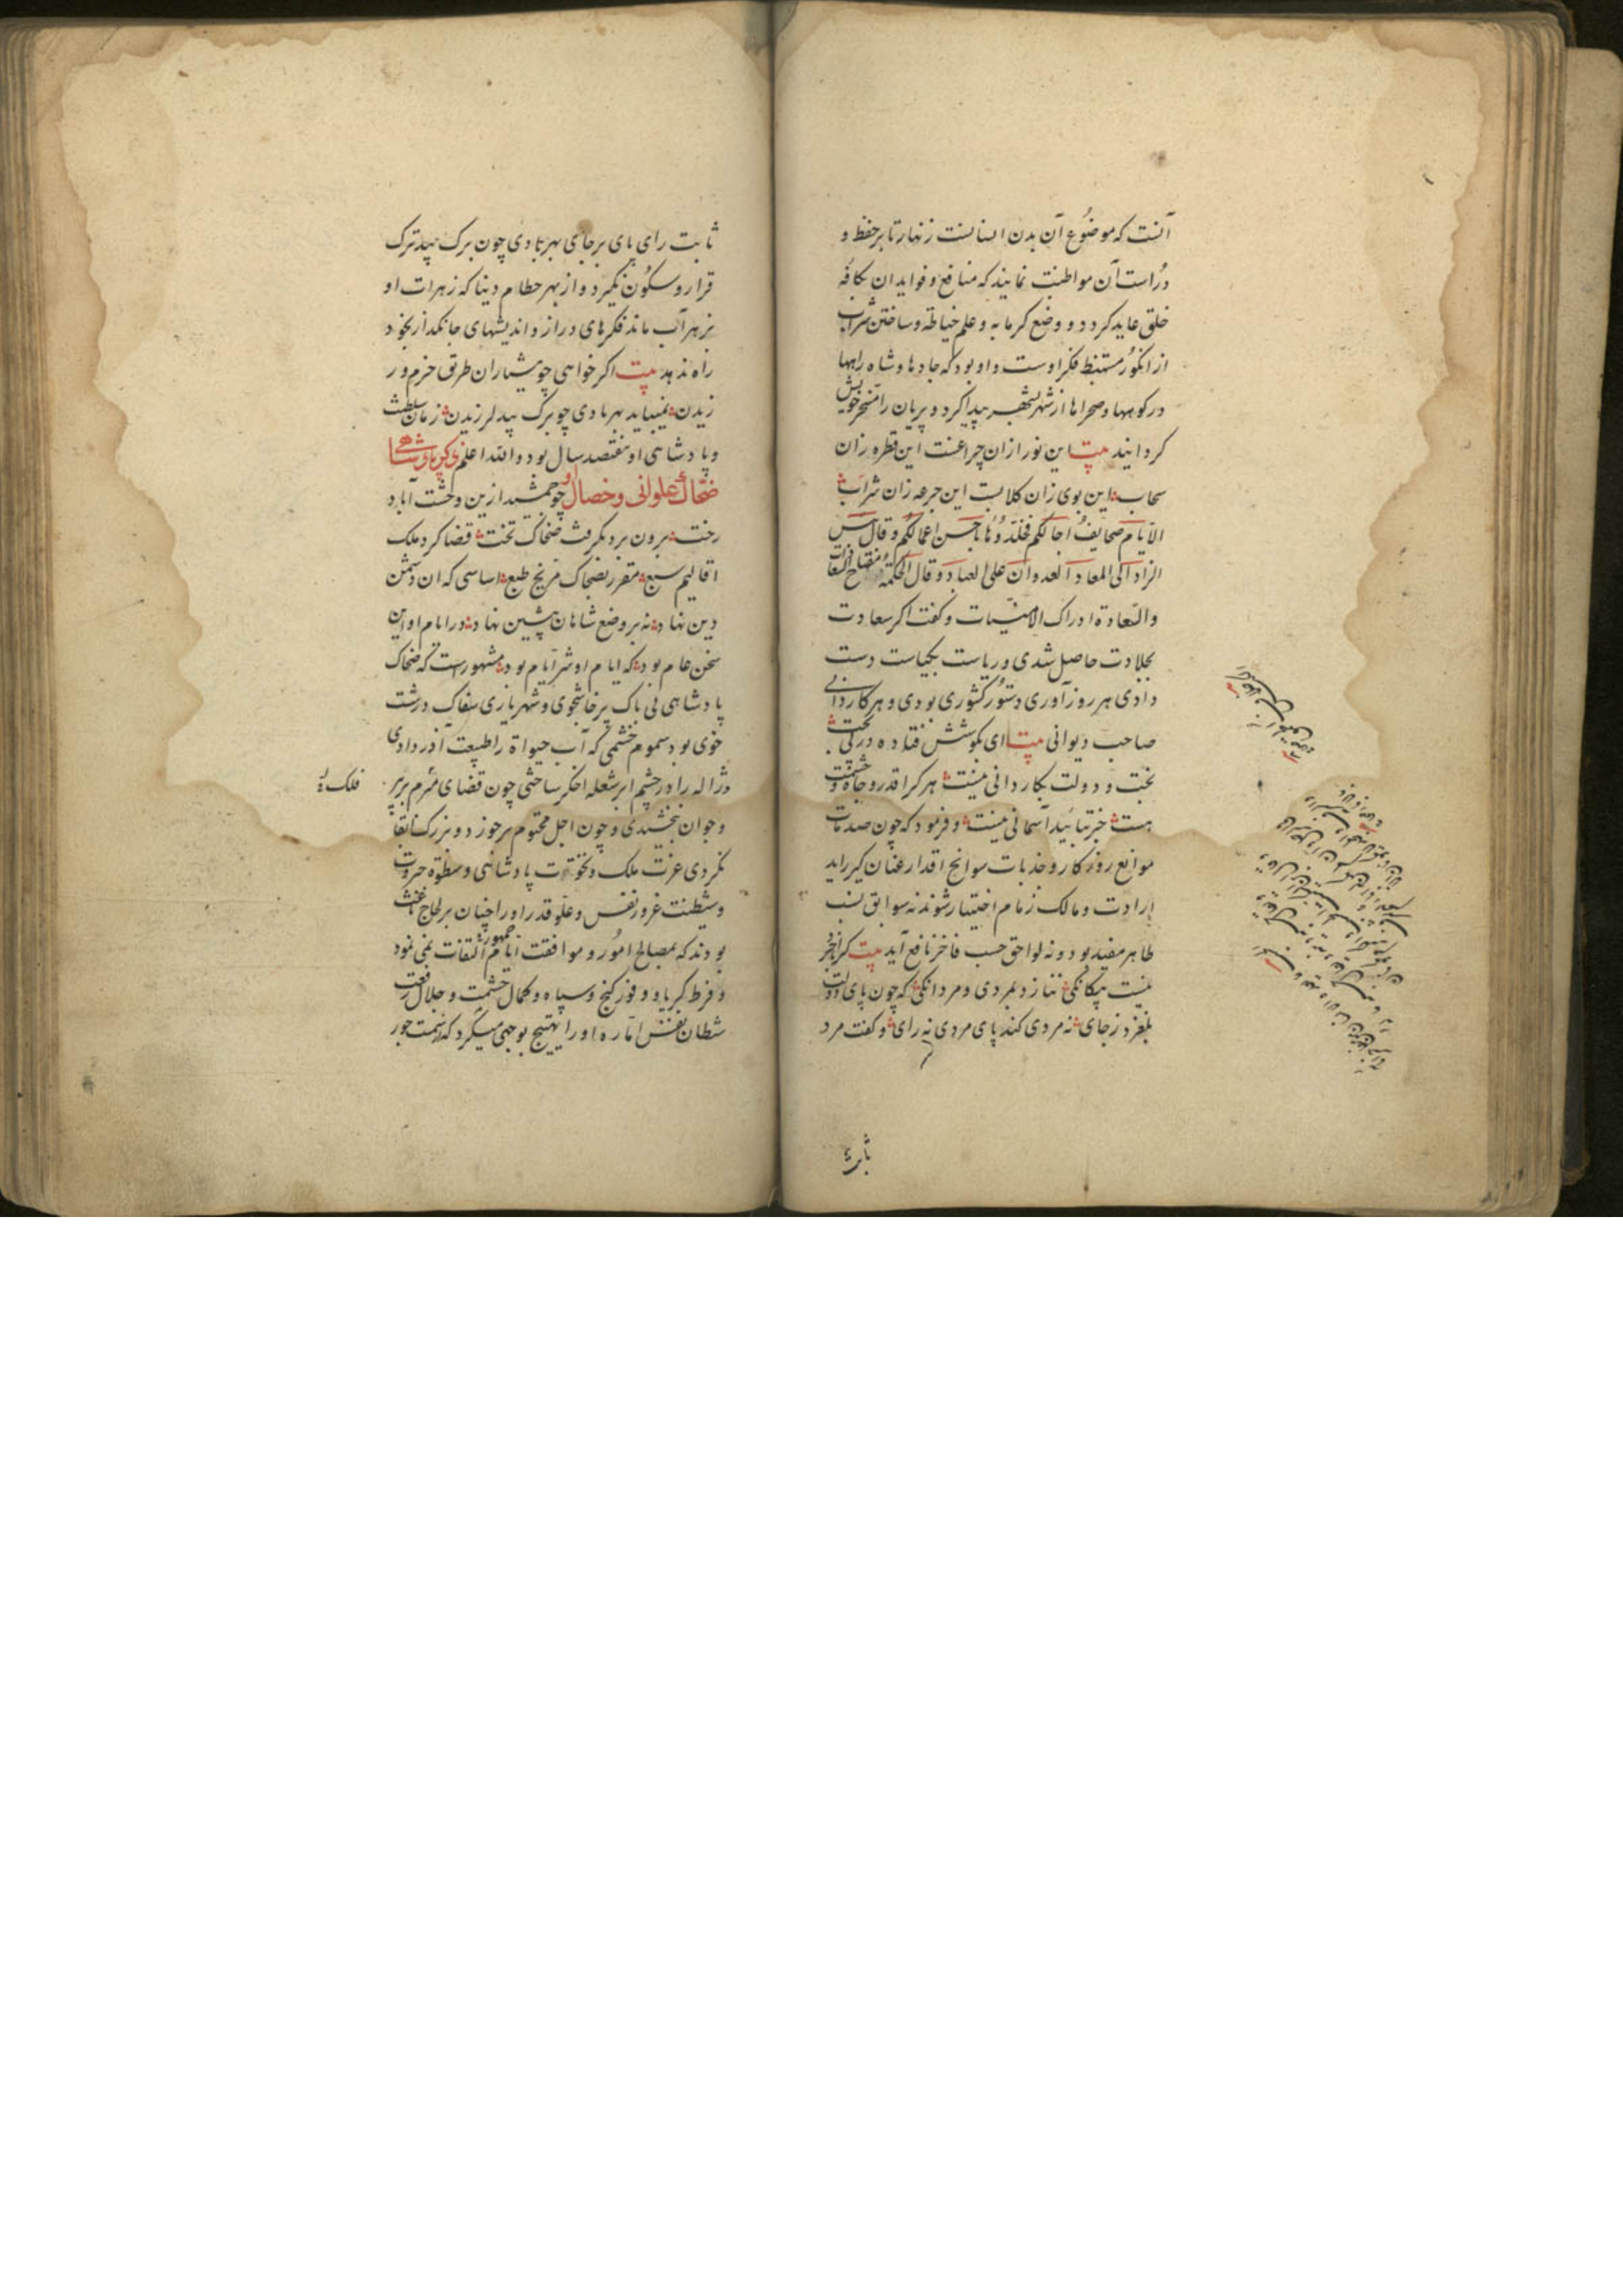 آنست که موضوع آن بدن انسانست زنهار تا بر حفظ و
دراست آن مواظبت نمایند که منافع و فواید ان بکافه
خلق عاید کردد و وضع کرمابه و علم خیاطه و ساختن شراب
از انکور مستنبط فکر اوست و او بود که جادها و شاه راهها
در کوهها و صحراها از شهر بشهر پیدا کرد و پریان را مسخر خویش
کردانید بیت این نور ازان چراغست این قطره زان
سحاب این بوی زان کلابست این جرعه زان شراب
الایام صحایف اجالکم فخلدوها باحسن اعمالکم و قال بئس
الزاد الی المعاد العدوان علی العباد و قال الحکمة مفتاح
والسعادة ادراک الامنیات و کفت اکر سعادت
بجلادت حاصل شدی و ریاست بکیاست دست
دادی هر روزآوری دستور کشوری بودی و هر کاردانی
صاحب دیوانی بیت ای بکوشش فتاده در پی بخت
بخت و دولت بکاردانی نیست هر کرا قدر و جاه و حشمت
هست جز بتایید آسمانی نیست و فرمود که چون صدمات
موانع روزکار و جذبات سوانح اقدار عنان کیر راید
ارادت و مالک زمام اختیار شوند نه سوابق نسب
طاهر مفید بود و نه لواحق حسب فاخر نافع آید بیت
نیست بیکانکی ننازد بمردی و مردانکی که چون پای دولت
بلغزد زجای نه مردی کند پای مردی نه رای و کفت مرد
ثابت
ثابت رای پای برجای بهر بادی چون برک بید ترک
قرار و سکون نکیرد و از بهر حطام دنیا که زهرات او
بزهر آب ماند فکرهای دراز و اندیشهای جانکداز بخود
راه ندهد بیت اکر خواهی چو هشیاران طریق حزم ور
زیدن نمیباید بهر بادی چو برک بید لرزیدن زمان سلطنت
و پادشاهی او هفتصد سال بود والله اعلم ذکر پادشاهی
ضحاک علوانی و خصال او چو جمشید ازین وحشت آباد
رخت برون برد بکرفت ضحاک تخت قضا کرد ملک
اقالیم سبع مقرر بضحاک مریخ طبع اساسی که ان دشمن
دین نهاد نه بر وضع شاهان پیشین نهاد در ایام او این
سخن عام بود که ایام او شر ایام بود مشهورست که ضحاک
پادشاهی بی باک پرخاشجوی و شهریاری سفاک درشت
خوی بود سموم خشمی که آب حیوة را طبیعت آذر دادی
و ژاله را در چشم ابر شعله اخکر ساختی چون قضای مبرم بر پیر
فلک
و جوان نبخشیدی و چون اجل محتوم بر خورد و بزرک ابقا
نکردی عزت ملک و نخوت پادشاهی و سطوة جبروت
و شیطنت غرور نفس و علو قدر او را چنان بر لجاج باعث
بودند که بمصالح امور و موافقت ایام جمهور التفات نمی نمود
و فرط کبریا و وفور کنج و سپاه و کمال حشمت و جلال رفعت
شیطان نفس اماره او را تهییج بوجهی میکرد که سمت جور